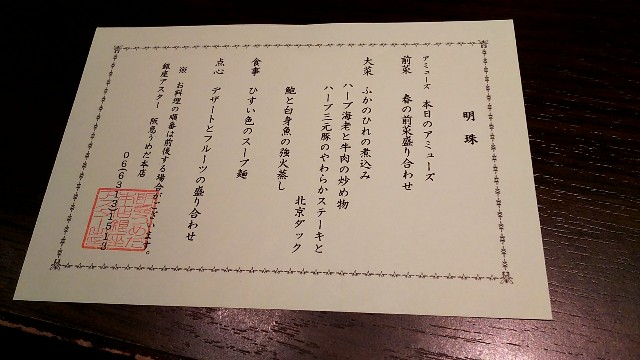 明珠
アミューズ 本日のアミューズ
前菜 春の前菜盛り合わせ
大菜 ふかのひれの煮込み
ハーブ海老と牛肉の炒め物
ハーブ三元豚のやわらかステーキと
北京ダック
鮑と白身魚の強火蒸し
食事 ひすい色のスープ麺
点心 デザートとフルーツの盛り合わせ
※ お料理の順番は前後する場合がございます。
銀座アスター 阪急うめだ本店
06-6313-1513